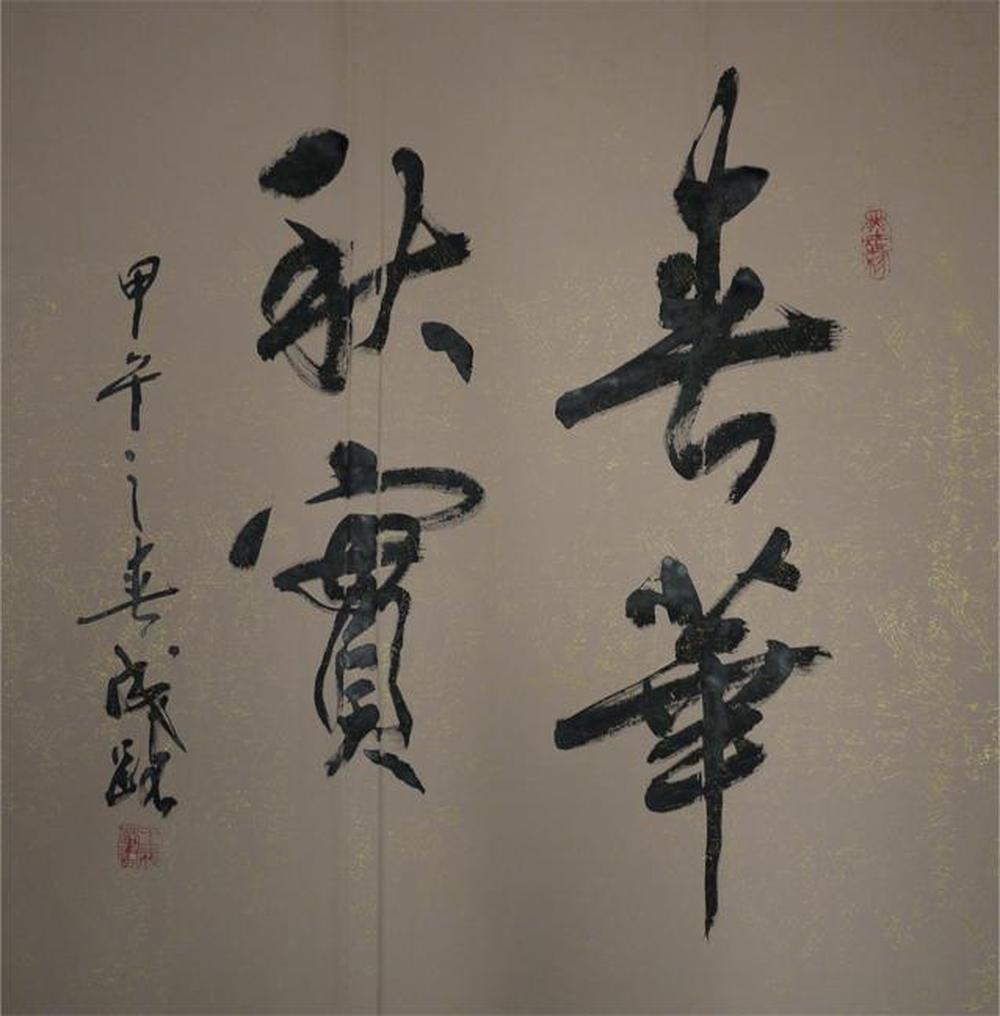 春華
秋實
甲午之春成